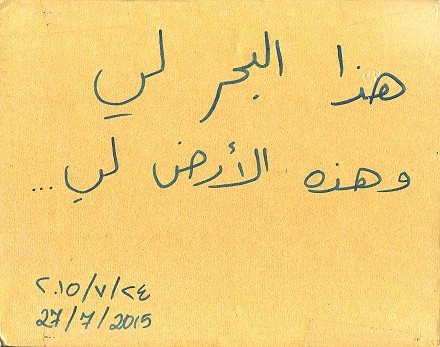 هذا البحر لي
وهذه الأرض لي...
٢٠١٥/٧/٢٤
27/7/2015